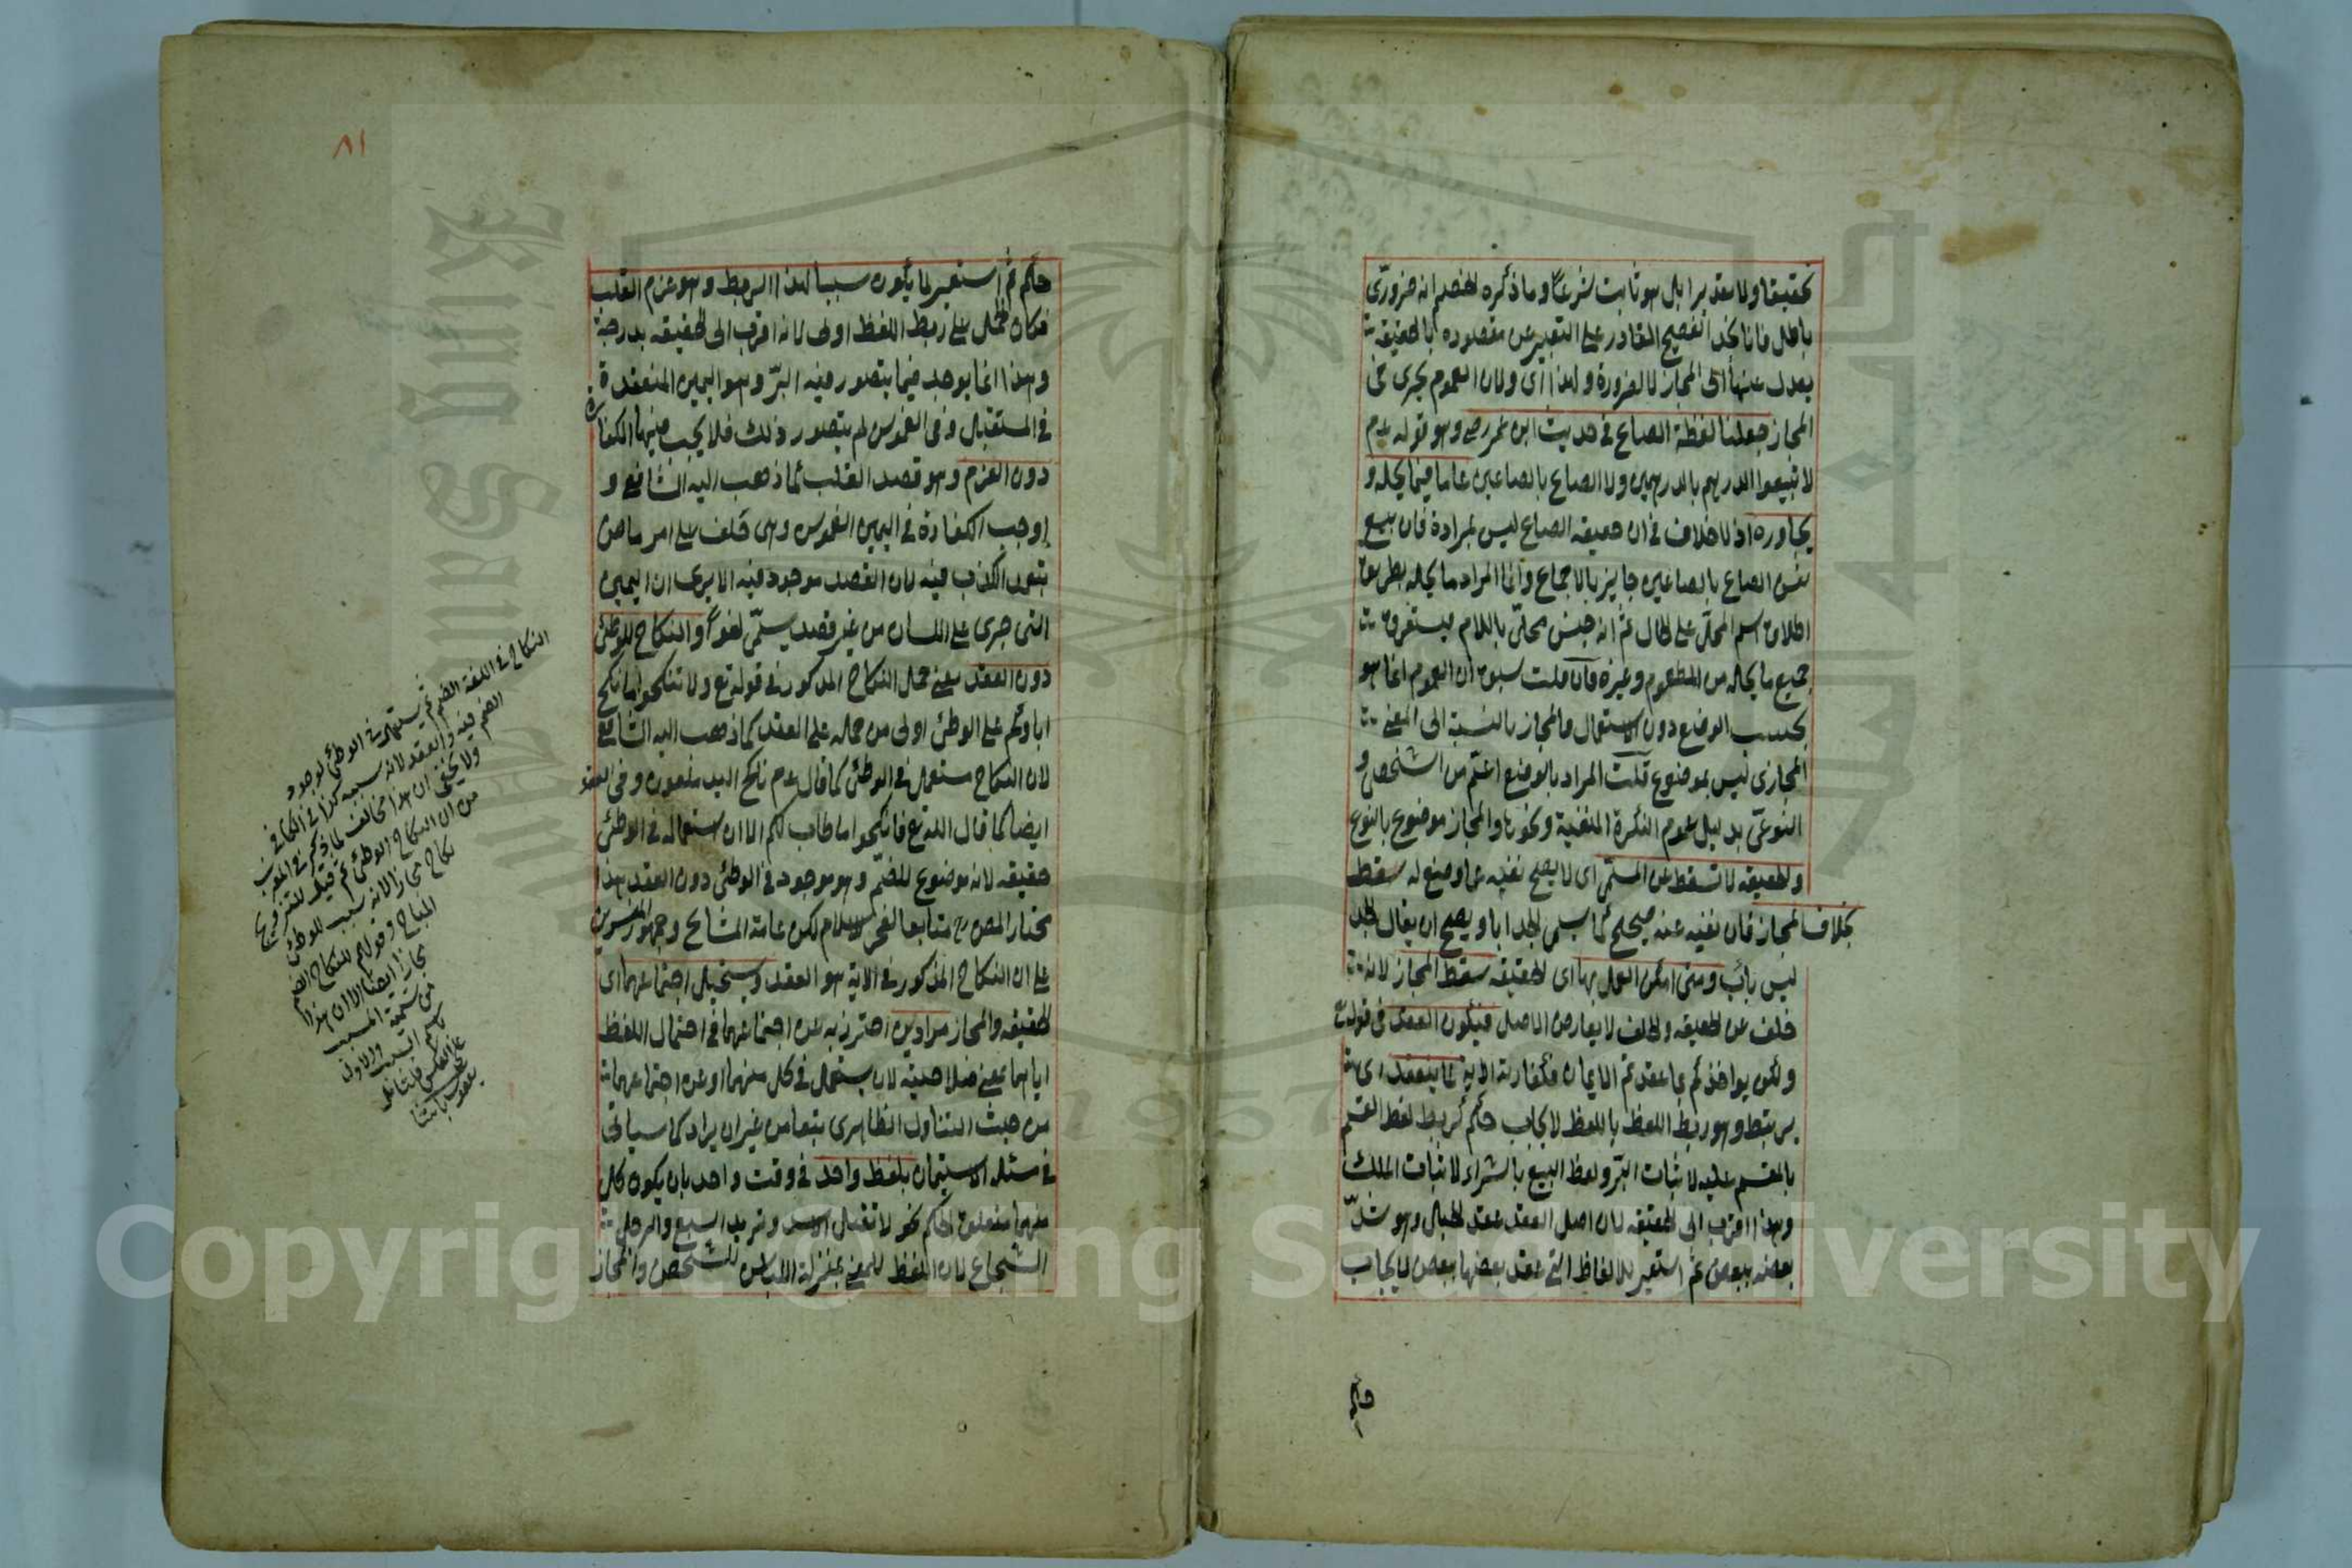 تحقيقا ولا تقديرا بل هو ثابت شرعا وما ذكره الخصم انه ضروري
باطل فانا نجد الفصيح القادر على التعبير عن مقصوده بالحقيقة
يعدل عنها الى المجاز لا لضرورة ولهذا اى ولان العموم يجرى فى
المجاز جعلنا لفظة الصاع فى حديث ابن عمر رضى وهو قوله عم
لا تبيعوا الدرهم بالدرهمين ولا الصاع بالصاعين عاما فيما يحله و
يجاوره اذ لا خلاف فى ان حقيقة الصاع ليس بمرادة فان بيع
نفس الصاع بالصاعين جايز بالاجماع وانما المراد ما يحله بطريق
اطلاق اسم المحل على الحال ثم انه جنس محلى باللام فيستغرق
جميع ما يحله من المطعوم وغيره فان قلت سبق ان العموم انما هو
بحسب الوضع دون الاستعمال والمجاز بالنسبة الى المعنى
المجازى ليس بموضوع قلت المراد بالوضع اعم من الشخصى و
النوعى بدليل عموم النكرة المنفية ونحوها والمجاز موضوع بالنوع
والحقيقة لا تسقط عن المسمى اى لا يصح نفيه عما وضع له سقط
بخلاف المجاز فان نفيه عنه صحيح كما يسمى الجد ابا ويصح ان يقال الجد
ليس باب ومتى امكن العمل بها اى الحقيقة سقط المجاز لانه
خلف عن الحقيقة والخلف لا يعارض الاصل فيكون العقد فى قوله
ولكن يواخذكم بما عقدتم الايمان فكفارته الاية لما ينعقد اى
يرتبط وهو ربط اللفظ باللفظ لايجاب حكم كربط لفظ القسم
بالمقسم عليه لاثبات البر ولفظ البيع بالشراء لاثبات الملك
وهذا اقرب الى الحقيقة لان اصل العقد عقد الحبال وهو شد
بعضه ببعض ثم استعير للالفاظ التى عقد بعضها ببعض لايجاب
حكم
٨١
حكم ثم استعير لما يكون سببا لهذا الربط وهو عزم القلب
فكان الحمل على ربط اللفظ اولى لانه اقرب الى الحقيقة بدرجة
وهذا انما يوجد فيما يتصور فيه البر وهو اليمين المنعقدة
فى المستقبل وفى الغموس لم يتصور ذلك فلا يجب فيها الكفارة
دون العزم وهو قصد القلب كما ذهب اليه الشافعى و
اوجب الكفارة فى اليمين الغموس وهى حلف على امر ماض
يتعمد الكذب فيه لان القصد موجود فيه الا يرى ان اليمين
التى جرى على اللسان من غير قصد يسمى لغوا والنكاح للوطئ
دون العقد يعنى حمل النكاح المذكور فى قوله تع ولا تنكحوا ما نكح
اباؤكم على الوطئ اولى من حمله على العقد كما ذهب اليه الشافعى
لان النكاح مستعمل فى الوطئ كما قال عم ناكح اليد ملعون وفى العقد
ايضا كما قال الله تع فانكحوا ما طاب لكم الا ان استعماله فى الوطئ
حقيقة لانه موضوع للضم وهو موجود فى الوطئ دون العقد هذا
مختار المص رح متابعا لفخر الاسلام لكن عامة المشايخ وجمهور المفسرين
على ان النكاح المذكور فى الاية هو العقد ويستحيل اجتماعهما اى
الحقيقة والمجاز مرادين احترز به عن اجتماعهما فى احتمال اللفظ
اياهما بمعنى صلاحيته لان يستعمل فى كل منهما وعن اجتماعهما
من حيث التناول الظاهرى تبعا من غير ان يراد كما سياتى
فى مسئلة الاستيمان بلفظ واحد فى وقت واحد بان يكون كل
منهما متعلق الحكم نحو لا تقتل الاسد وتريد السبع والرجل
الشجاع لان اللفظ للمعنى بمنزلة اللباس للشخص والمجاز
النكاح فى اللغة الضم ثم يستعمل فى الوطئ لوجود
الضم فيه والعقد لانه سببه كذا فى الكافى
ولا يخفى ان هذا مخالف لما ذكر فى المغرب
من ان النكاح الوطئ ثم قيل للتزويج
نكاح مجازا لانه سبب للوطئ
المباح وقولهم النكاح الضم
مجاز ايضا الا ان هذا
من تسمية المسبب
باسم السبب والاول
على العكس